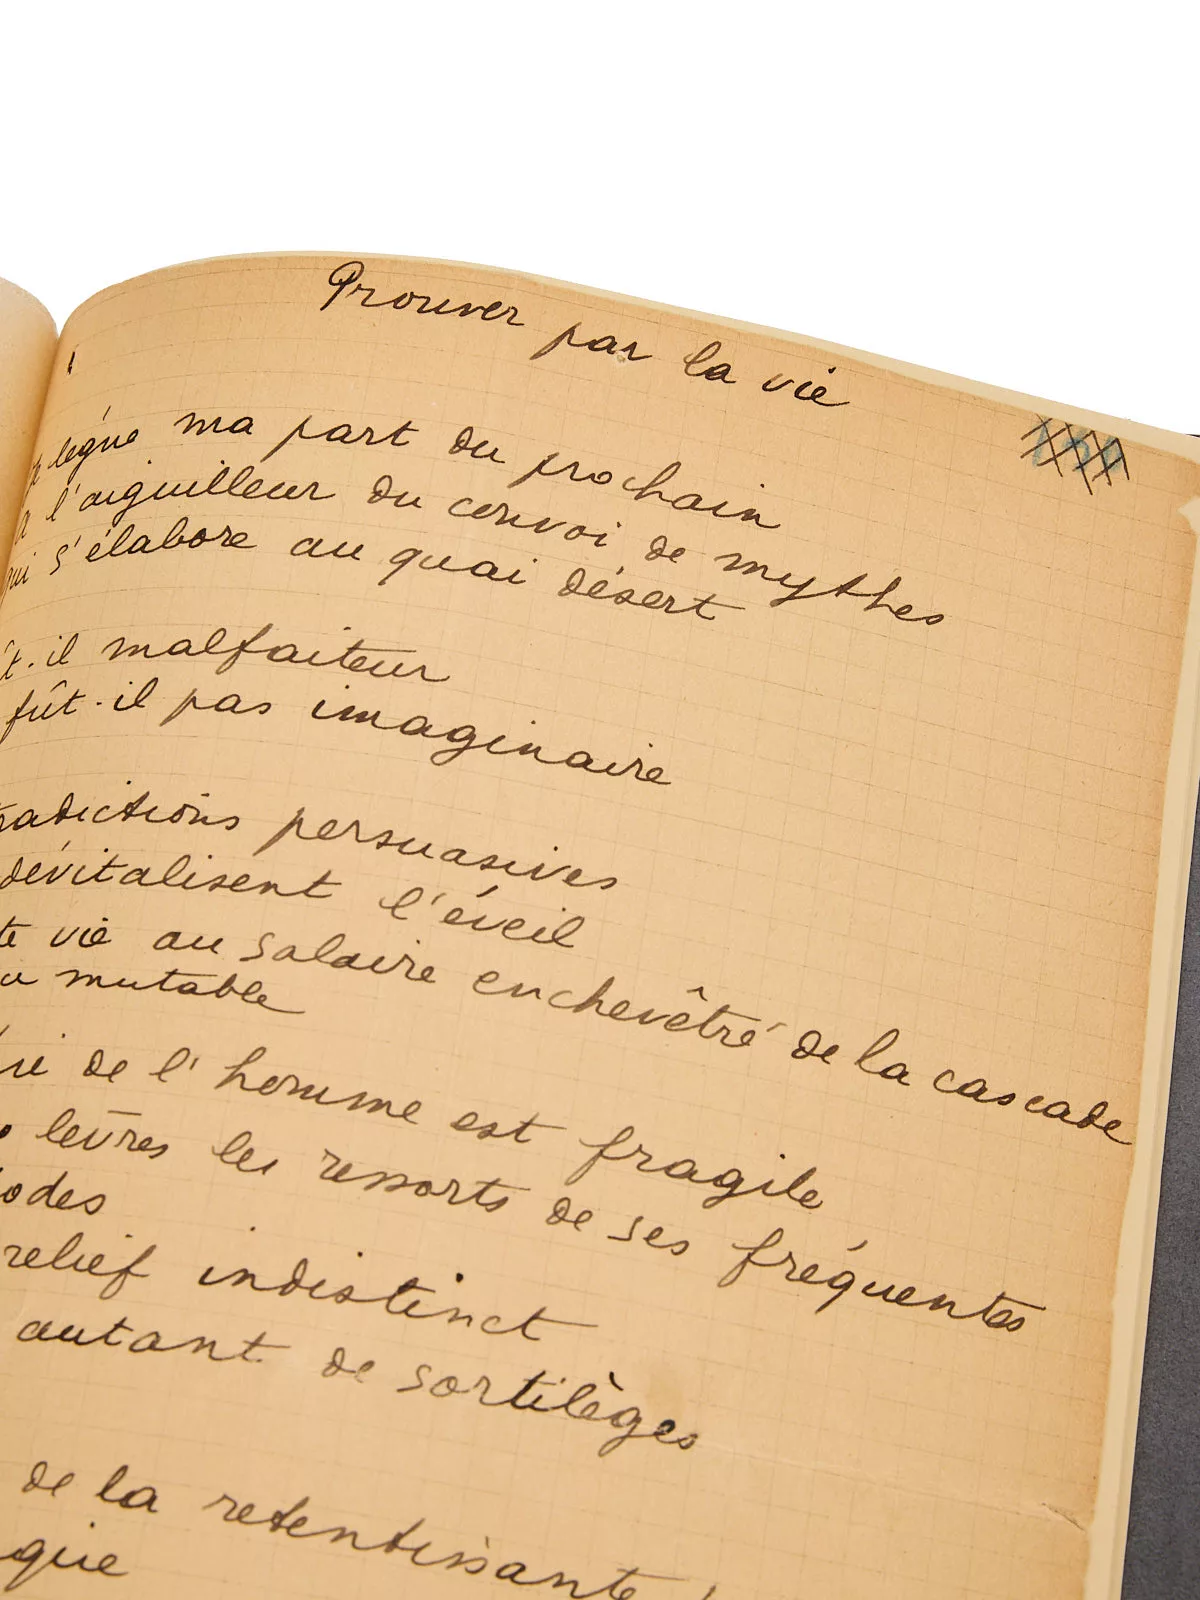 Prouver par la vie
Je lègue ma part du prochain
A l'aiguilleur du convoi de mythes
qui s'élabore au quai désert
fût-il malfaiteur
fût-il pas imaginaire
persuasives
dévitalisent l'éveil
vie au salaire enchevêtré de la cascade
mutable
de l'homme est fragile
lèvres les ressorts de ses fréquentes
relief indistinct
autant de sortilèges
de la retentissante